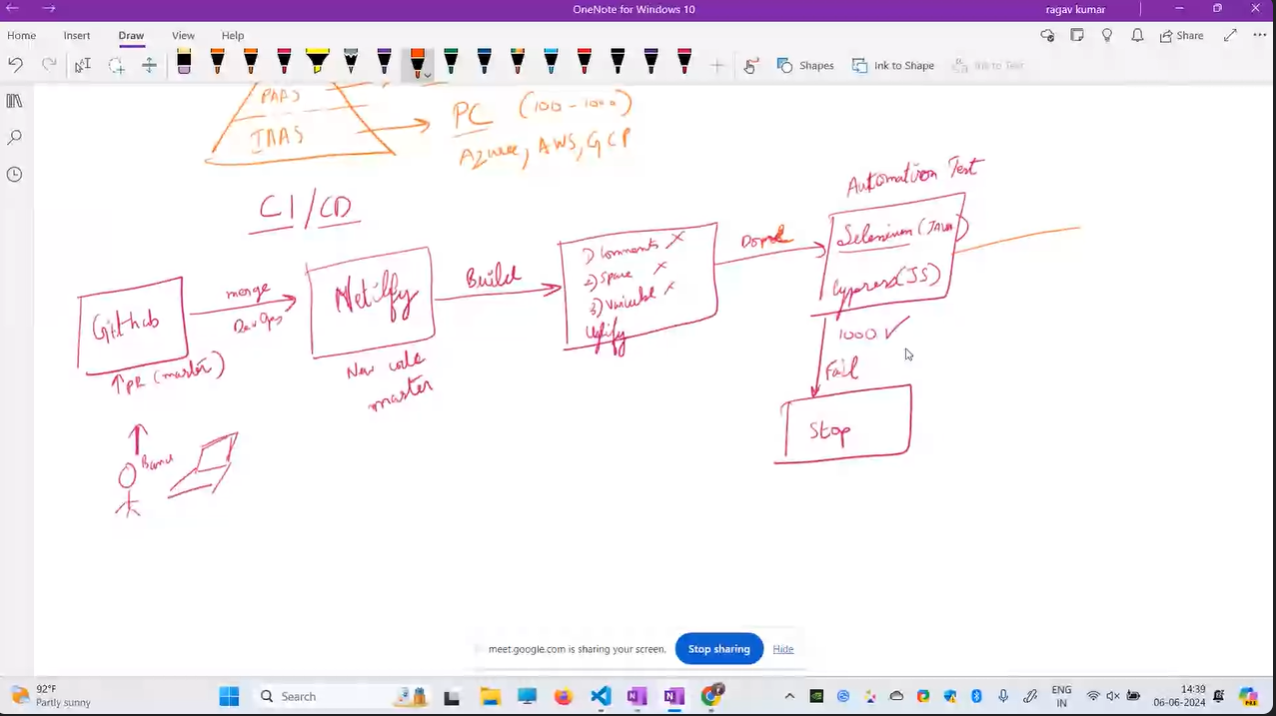 OneNote for Windows 10
ragav kumar
Home Insert Draw View Help
Share
Shapes
Ink to Shape
Ink to Text
PAAS
IAAS
PC (100 - 1000)
Azure, AWS, GCP
CI/CD
Automation Test
Github
merge
DevOps
Netilfy
Build
1) Comments X
2) Space X
3) Variable X
Uglify
Done
Selenium (JAVA)
Cypress (JS)
↑PR (master)
New code
master
1000 ✓
Fail
Stop
meet.google.com is sharing your screen.
Stop sharing
Hide
92°F
Partly sunny
Search
ENG
IN
14:39
06-06-2024